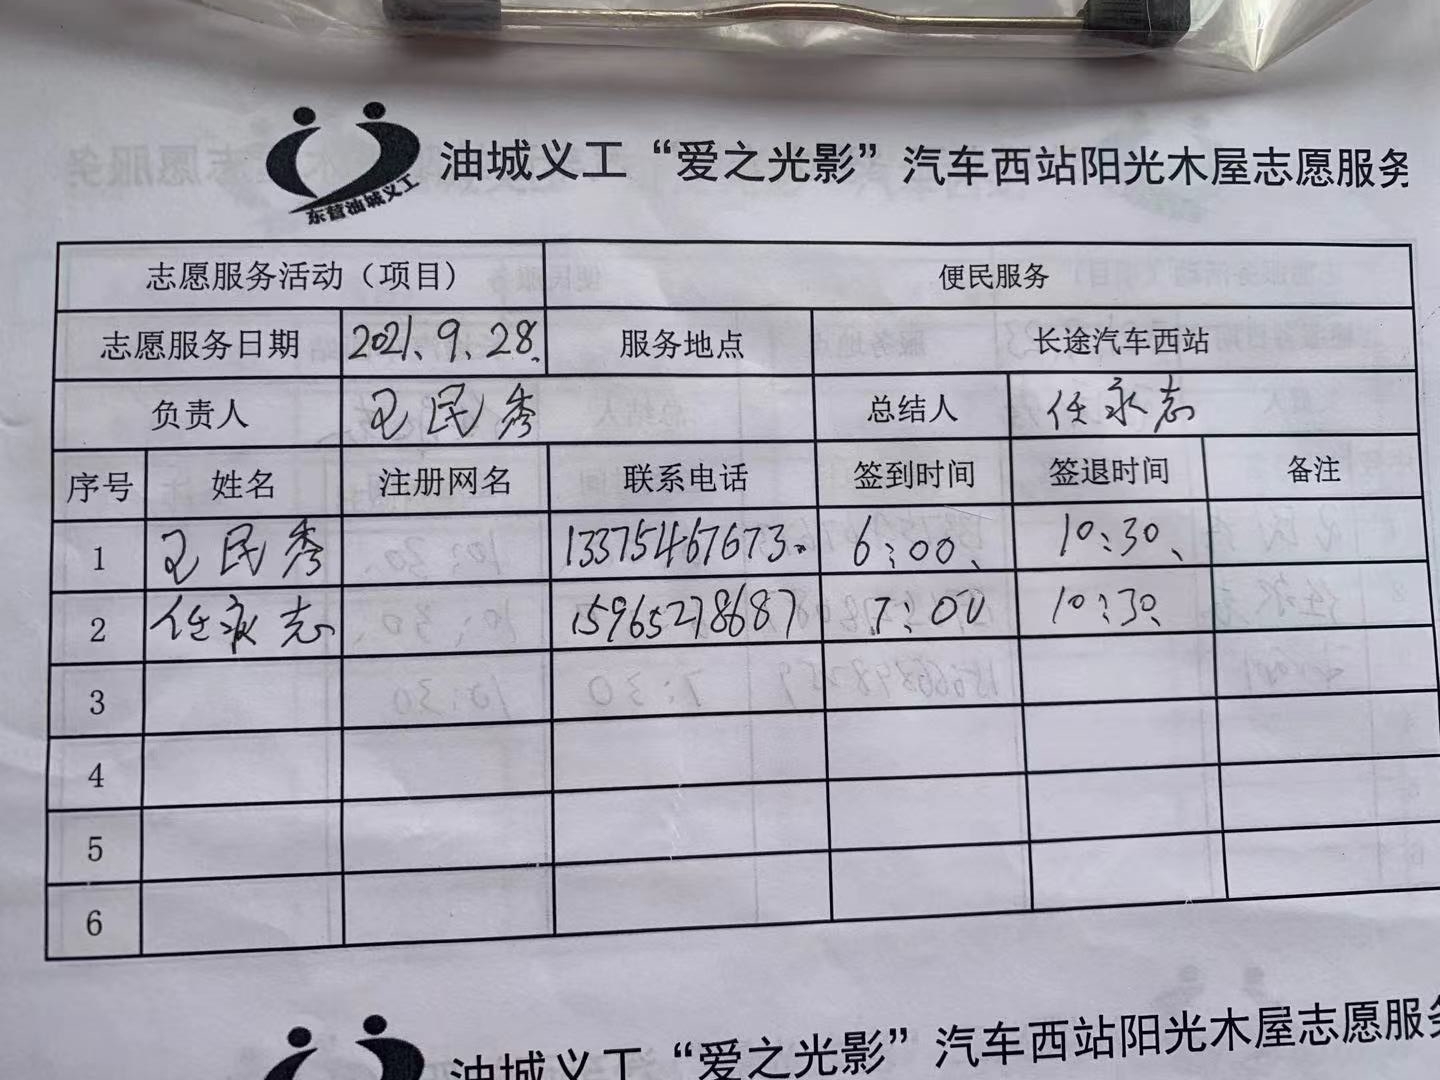 油城义工“爱之光影”汽车西站阳光木屋志愿服务
东营油城义工
志愿服务活动（项目） 便民服务
志愿服务日期 2021、9、28、 服务地点 长途汽车西站
负责人 王民秀 总结人 任永志
序号 姓名 注册网名 联系电话 签到时间 签退时间 备注
1 王民秀 13375467673. 6:00、 10:30、
2 任永志 15965278687 7:00 10:30、
3
4
5
6
油城义工“爱之光影”汽车西站阳光木屋志愿服务